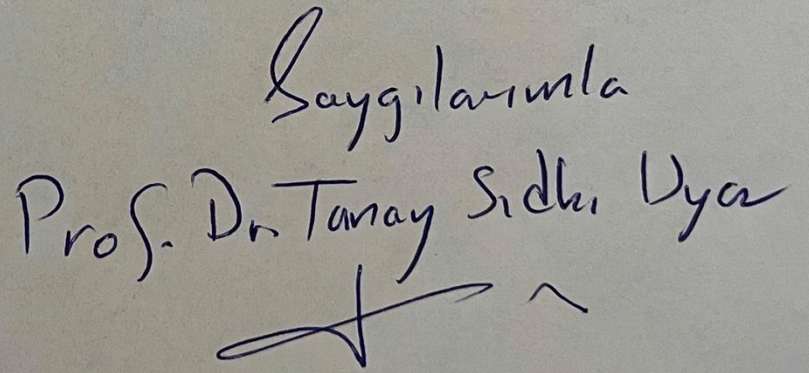 Saygılarımla
Prof. Dr. Tanay Sıdkı Uyar